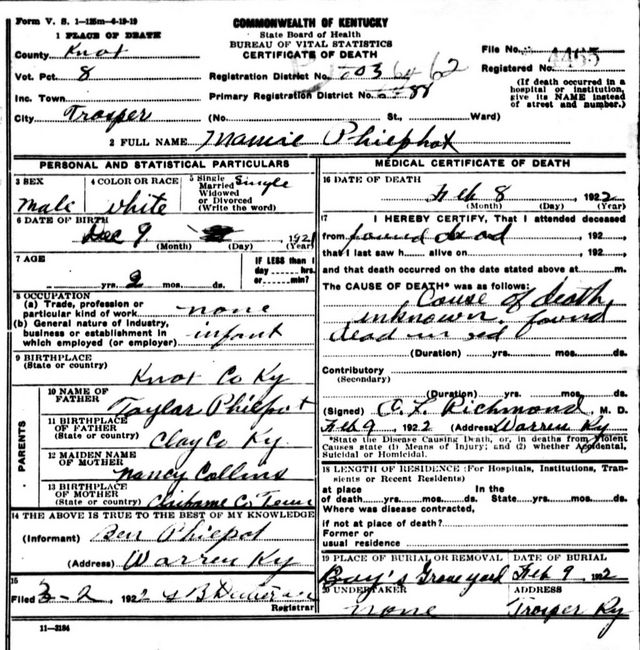 Form V. S. 1—125m—6-19-19
COMMONWEALTH OF KENTUCKY
State Board of Health
BUREAU OF VITAL STATISTICS
CERTIFICATE OF DEATH
1 PLACE OF DEATH
County Knox
Vot. Pct 8
Inc. Town
City Trosper
File No. 4465
Registered No.
(If death occurred in a hospital or institution, give its NAME instead of street and number.)
Registration District No.
Primary Registration District No.
(No. St., Ward)
2 FULL NAME Mamie Philphot
PERSONAL AND STATISTICAL PARTICULARS
3 SEX Male
4 COLOR OR RACE white
5 Single Married Widowed or Divorced (Write the word) Single
6 DATE OF BIRTH Dec 9 1921
(Month) (Day) (Year)
7 AGE
yrs. 2 mos. ds.
IF LESS than 1 day hrs. or min?
8 OCCUPATION
(a) Trade, profession or particular kind of work none
(b) General nature of industry, business or establishment in which employed (or employer) infant
9 BIRTHPLACE
(State or country) Knox Co Ky
PARENTS
10 NAME OF FATHER Taylar Philpot
11 BIRTHPLACE OF FATHER (State or country) Clay Co Ky.
12 MAIDEN NAME OF MOTHER Nancy Collins
13 BIRTHPLACE OF MOTHER (State or country) Claibarne Co Tenn
14 THE ABOVE IS TRUE TO THE BEST OF MY KNOWLEDGE
(Informant) Ben Philpot
(Address) Warren Ky
15
Filed 3-2, 1922 Registrar
11—3184
MEDICAL CERTIFICATE OF DEATH
16 DATE OF DEATH
Feb 8, 1922
(Month) (Day) (Year)
17 I HEREBY CERTIFY, That I attended deceased
from found dead, 192, to, 192,
that I last saw h alive on, 192,
and that death occurred on the date stated above at m.
The CAUSE OF DEATH* was as follows:
Cause of death
unknown found
dead in bed
(Duration) yrs. mos. ds.
Contributory
(Secondary)
(Duration) yrs. mos. ds.
(Signed) C. L. Richmond, M. D.
Feb 9, 1922 (Address) Warren Ky
*State the Disease Causing Death, or, in deaths from Violent Causes state (1) Means of Injury; and (2) whether Accidental, Suicidal or Homicidal.
18 LENGTH OF RESIDENCE (For Hospitals, Institutions, Transients or Recent Residents)
at place of death yrs. mos. ds. In the State yrs. mos. ds.
Where was disease contracted,
if not at place of death?
Former or usual residence
19 PLACE OF BURIAL OR REMOVAL Bay's Graveyard
DATE OF BURIAL Feb 9, 1922
20 UNDERTAKER none
ADDRESS Trosper Ky